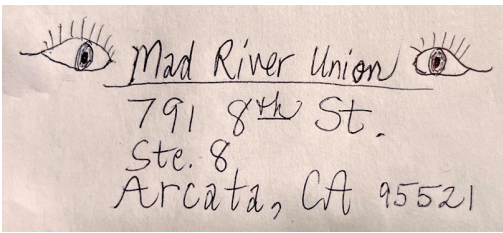 Mad River Union
791 8th St.
Ste. 8
Arcata, CA 95521